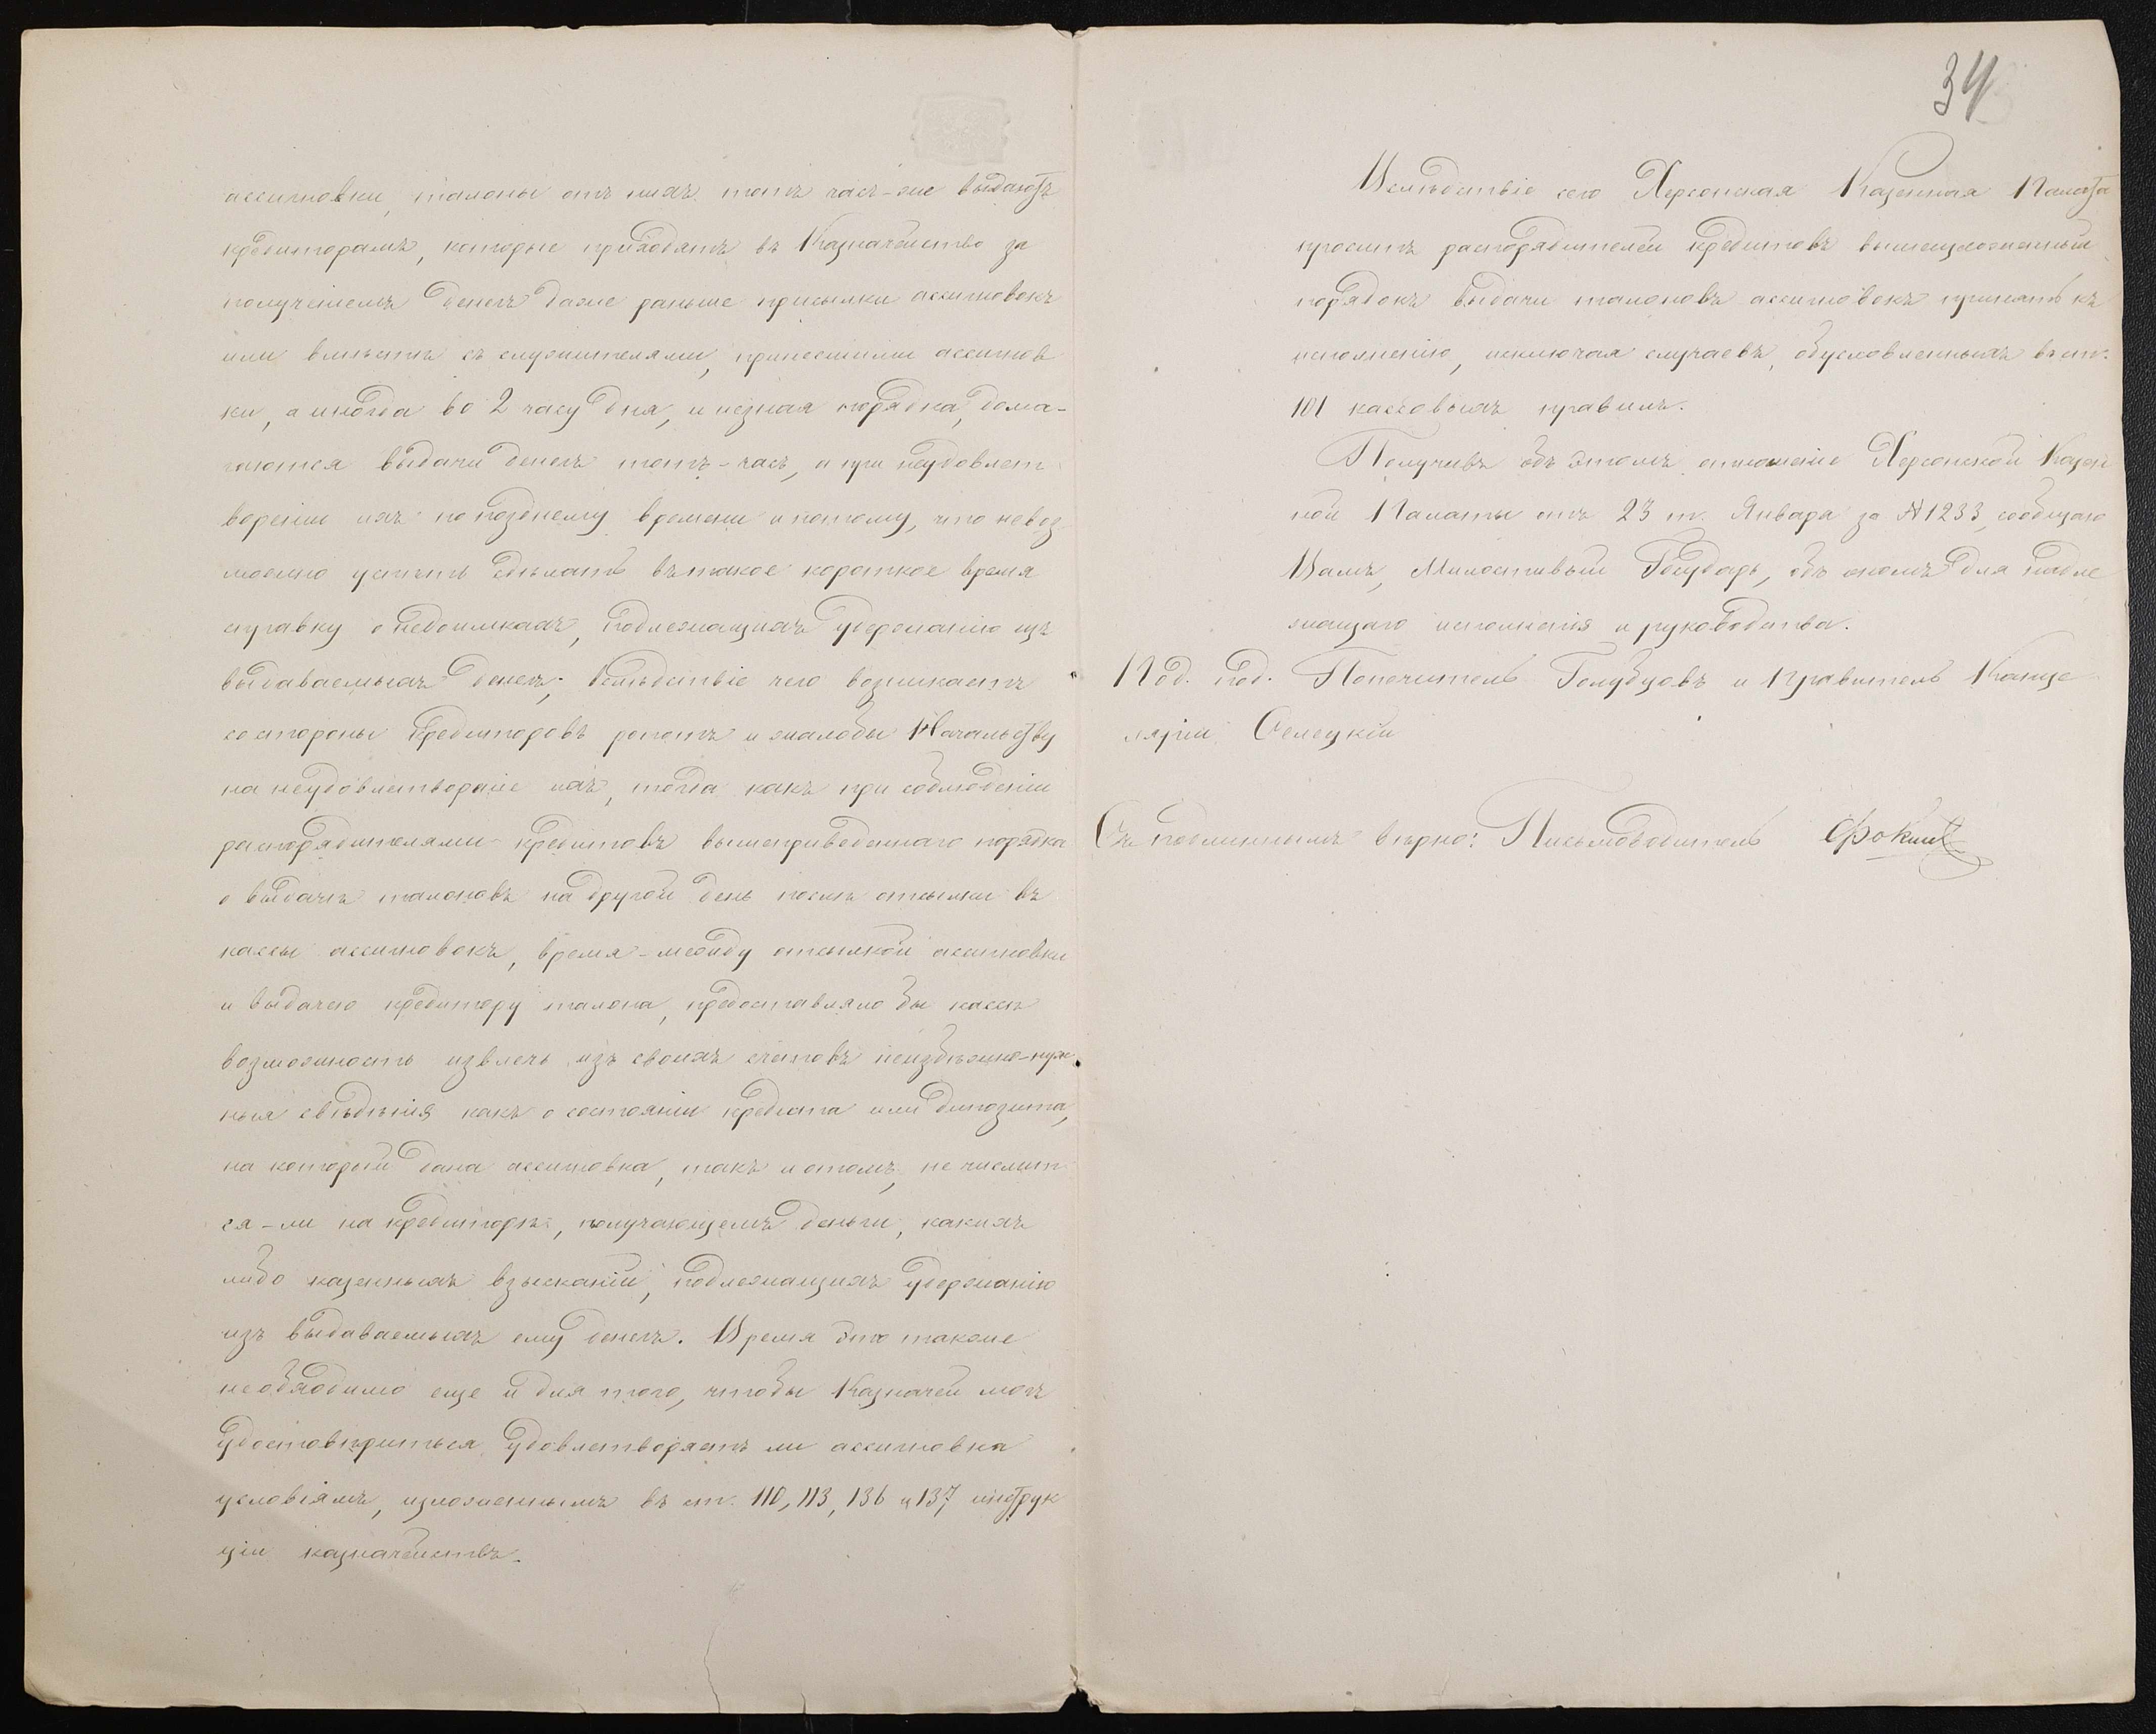 ассигновки, талоны отъ нихъ тотъ часъ-же выдаютъ
кредиторамъ, которые приходятъ въ Казначейство за
полученіемъ денегъ даже раньше присылки ассигновокъ
или вмѣстѣ съ служителями, принесшими ассигнов
ки, а иногда во 2 часу дня, и незная порядка, дома-
гаются выдачи денегъ тотъ-часъ, а при неудовлет
вореніи ихъ по позднему времени и потому, что невоз
можно успѣть сдѣлать въ такое короткое время
справку о недоимкахъ, подлежащихъ удержанію изъ
выдаваемыхъ денегъ; вслѣдствіе чего возникаетъ
со стороны кредиторовъ ропотъ и жалобы Начальству
на неудовлетвореніе ихъ, тогда какъ при соблюденіи
распорядителями кредитовъ вышеприведеннаго порядка
о выдачѣ талоновъ на другой день послѣ отсылки въ
кассы ассигновокъ, время-между отсылкой ассигновки
и выдачею кредитору талона, предоставляло бы кассѣ
возможность извлечь изъ своихъ счетовъ неизбѣжно-нуж
ныя свѣдѣнія какъ о состояніи кредита или депозита,
на который дана ассигновка, такъ и отомъ, не числит
ся-ли на кредиторѣ, получающемъ деньги, какихъ
либо казенныхъ взысканій, подлежащихъ удержанію
изъ выдаваемыхъ ему денегъ. Время это такоже
необходимо еще и для того, чтобы Казначей могъ
удостовѣриться, удовлетворяетъ ли ассигновка
условіямъ, изложеннымъ въ ст. 110, 113, 136 и 137 инструк
ціи казначействъ.
34
Вслѣдствіе сего Херсонская Казенная Палата
проситъ распорядителей кредитовъ вышеизложенный
порядокъ выдачи талоновъ ассигновокъ принять къ
исполненію, исключая случаевъ, обусловленныхъ въ ст.
101 кассовыхъ правилъ.
Получивъ объ этомъ отношеніе Херсонской Казен
ной Палаты отъ 23 т. Января за № 1233, сообщаю
Вамъ, Милостивый Государь, объ ономъ для надле
жащаго исполненія и руководства.
Под. под. Попечитель Голубцовъ и Правитель Канце
ляріи Селецкій
Съ подлиннымъ вѣрно: Письмоводитель Фокин